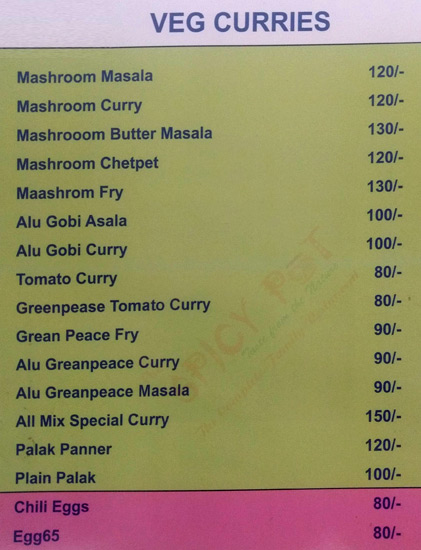 VEG CURRIES
Mashroom Masala 120/-
Mashroom Curry 120/-
Mashrooom Butter Masala 130/-
Mashroom Chetpet 120/-
Maashrom Fry 130/-
Alu Gobi Asala 100/-
Alu Gobi Curry 100/-
Tomato Curry 80/-
Greenpease Tomato Curry 80/-
Grean Peace Fry 90/-
Alu Greanpeace Curry 90/-
Alu Greanpeace Masala 90/-
All Mix Special Curry 150/-
Palak Panner 120/-
Plain Palak 100/-
Chili Eggs 80/-
Egg65 80/-
SPICY POT
Taste from the
The Complete Family Restaurant